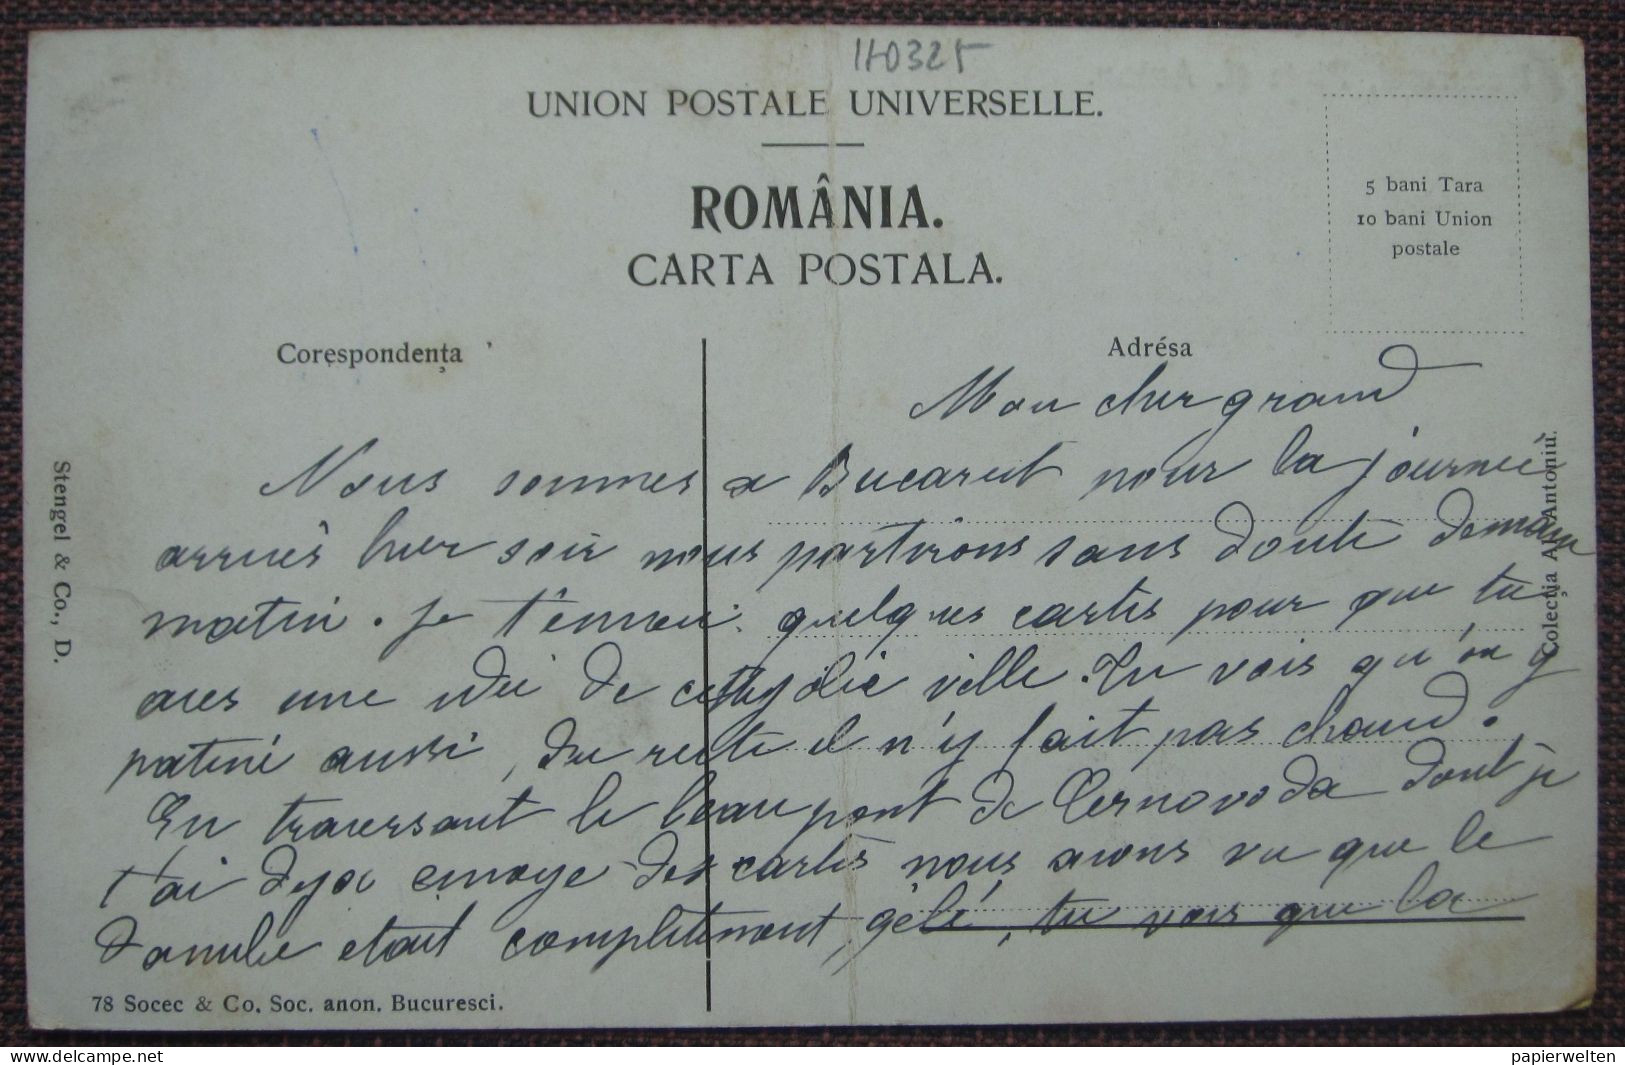 110325
UNION POSTALE UNIVERSELLE.
ROMÂNIA.
CARTA POSTALA.
5 bani Tara
10 bani Union
postale
Corespondența
Adrésa
Mon cher grand
Nous sommes a Bucarest pour la journée
arrivés hier soir nous partirons sans doute demain
matin. Je t'envoie quelques cartes pour que tu
aies une idée de cette jolie ville. Tu vois qu'on y
patine aussi, du reste il n'y fait pas chaud.
En traversant le beau pont de Cernovoda dont je
t'ai deja envoye des cartes nous avons vu que le
Danube etait completement gelé, tu vois que la
Stengel & Co., D.
Colecția Ad. Antoniŭ.
78 Socec & Co. Soc. anon. Bucuresci.
www.delcampe.net
papierwelten